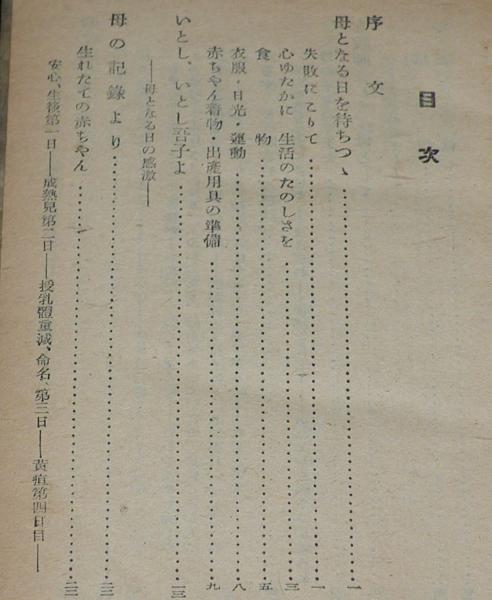 目次
序文
母となる日を待ちつゝ……一
失敗にこりて……一
心ゆたかに 生活のたのしさを……三
食物……五
衣服・日光・運動……八
赤ちやん着物・出產用具の準備……九
いとし、いとし吾子よ……一三
——母となる日の感激——
母の記錄より……二二
生れたての赤ちやん……二二
安心、生後第一日——成熟兒第二日——授乳體重減、命名、第三日——黃疸第四日目——